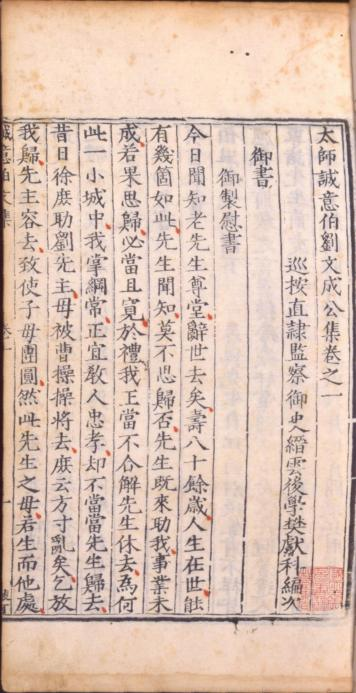 太師誠意伯劉文成公集卷之一
巡按直隸監察御史縉雲後學樊獻科編次
御書
御製慰書
今日聞知老先生尊堂辭世去矣壽八十餘歲人生在世能
有幾箇如此先生聞知莫不思歸否先生既來助我事業未
成若果思歸必當且寬於禮我正當不合解先生休去為何
此一小城中我掌綱常正宜教人忠孝却不當當先生歸去
昔日徐庶助劉先主母被曹操操將去庶云方寸亂矣乞放
我歸先主容去致使子母團圓然此先生之母若生而他處
誠意伯文集
卷一
一